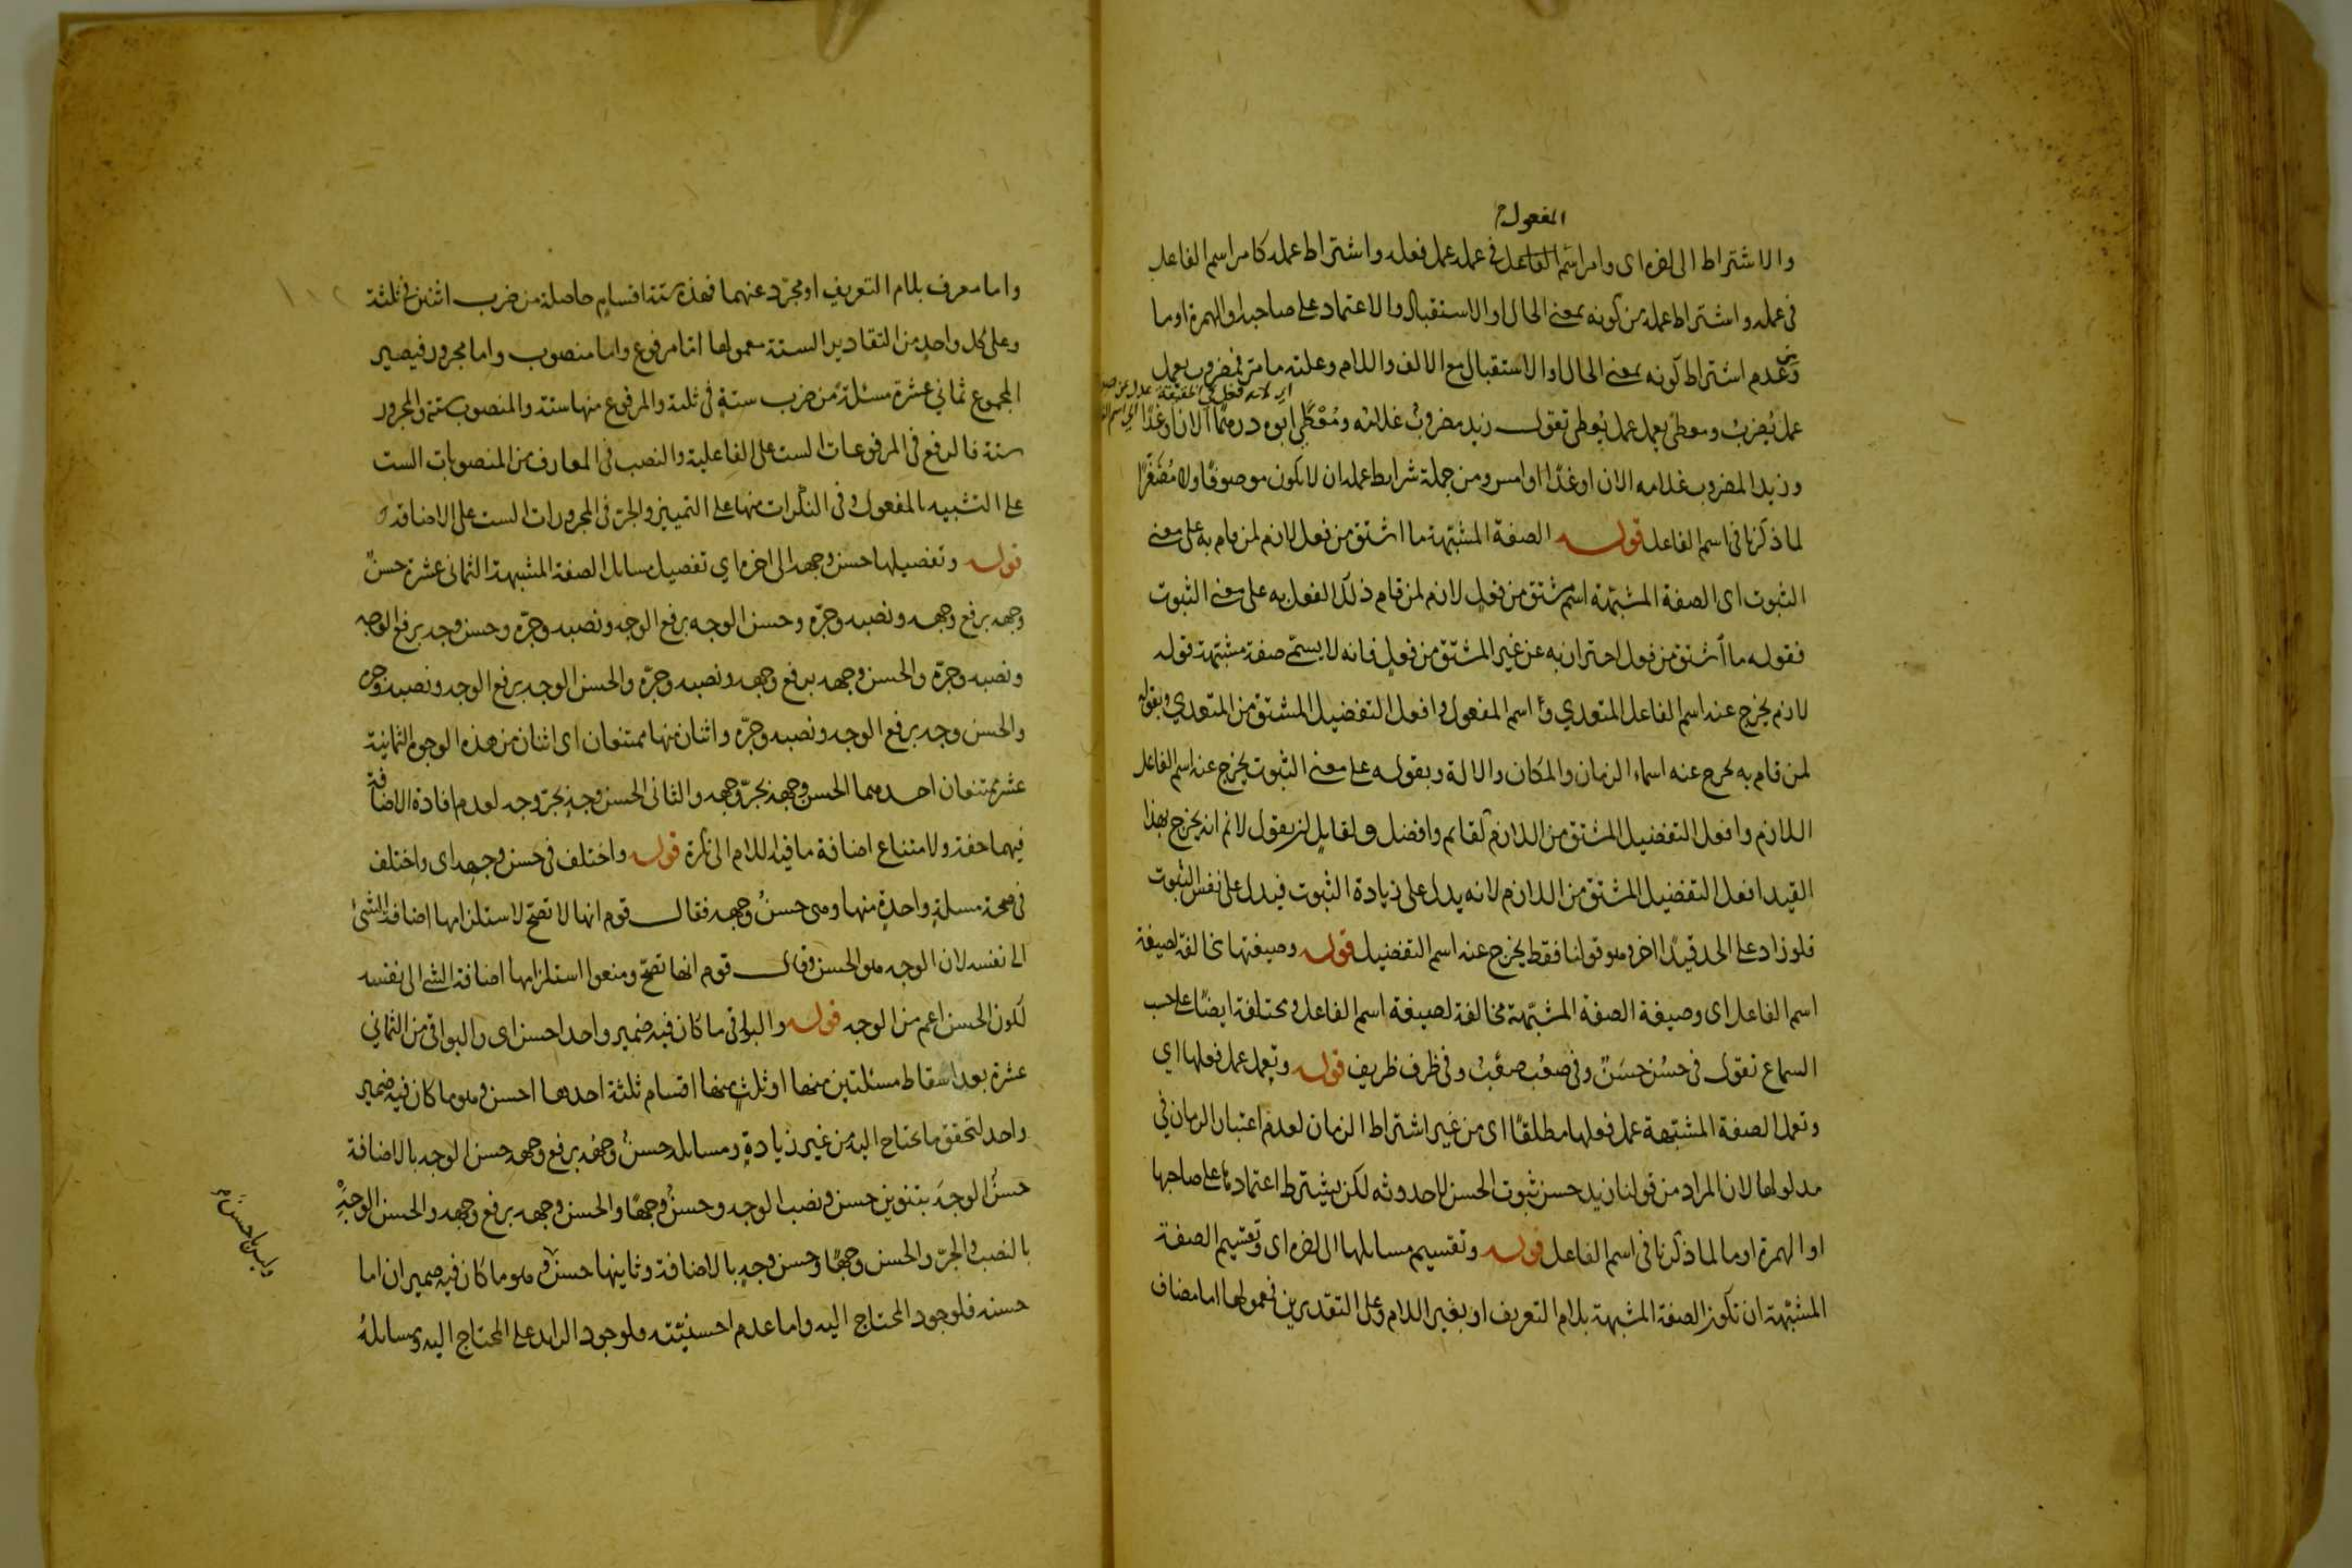 المفعول
والاشتراط الى اخره اى وامر اسم الفاعل فى عمله عمل فعله واشتراط عمله كامر اسم الفاعل
فى عمله واشتراط عمله من كونه بمعنى الحال او الاستقبال والاعتماد على صاحبه او الهمزة او ما
وعدم اشتراط كونه بمعنى الحال او الاستقبال مع الالف واللام وعلته ما مر فمضروب يعمل
عمل يُضرب ومعطى يعمل عمل يُعطى تقول زيد مضروبٌ غلامه ومُعْطًى ابوه درهمًا الان او غدًا
وزيد المضروب غلامه الان او غدًا او امس ومن جملة شرايط عمله ان لا يكون موصوفًا ولا مُصَغّرًا
لما ذكرنا فى اسم الفاعل قوله الصفة المشبّهة ما اشتق من فعل لازم لمن قام به على معنى
الثبوت اى الصفة المشبّهة اسم مشتق من فعلٍ لازم لمن قام ذلك الفعل به على معنى الثبوت
فقوله ما اشتق من فعل احتراز به عن غير المشتق من فعلٍ فانه لا يسمّى صفة مشبّهة قوله
لازم يخرج عنه اسم الفاعل المتعدي واسم المفعول وافعل التفضيل المشتق من المتعدي وبقوله
لمن قام به يخرج عنه اسماء الزمان والمكان والالة وبقوله على معنى الثبوت يخرج عنه اسم الفاعل
اللازم وافعل التفضيل المشتق من اللازم كقايم وافضل ولقايلٍ ان يقول لا نم انه يخرج بهذا
القيد افعل التفضيل المشتق من اللازم لانه يدل على زيادة الثبوت فيدل على نفس الثبوت
فلو زاد على الحد قيدًا اخر وهو قولنا فقط يخرج عنه اسم التفضيل قوله وصيغتها مخالفة لصيغة
اسم الفاعل اى وصيغة الصفة المشبّهة مخالفة لصيغة اسم الفاعل ومختلفة ايضًا على حسب
السماع تقول فى حسُن حسَنٌ وفى صعُب صعْبٌ وفى ظرف ظريف قوله وتعمل عمل فعلها اي
وتعمل الصفة المشبّهة عمل فعلها مطلقًا اى من غير اشتراط الزمان لعدم اعتبار الزمان فى
مدلولها لان المراد من قولنا زيد حسن ثبوت الحسن لا حدوثه لكن يشترط اعتمادها على صاحبها
او الهمزة او ما لما ذكرنا فى اسم الفاعل قوله وتقسيم مسايلها الى اخره اى وتقسيم الصفة
المشبّهة ان تكون الصفة المشبهة بلام التعريف او بغير اللام وعلى التقديرين فمعمولها اما مضاف
واما معرف بلام التعريف او مجرّد عنهما فهذه ستة اقسامٍ حاصلة من ضرب اثنين فى ثلثة
وعلى كل واحدٍ من التقادير الستة معمولها امّا مرفوع واما منصوب واما مجرور فيصير
المجموع ثماني عشرة مسئلة من ضرب ستةٍ فى ثلثة والمرفوع منها ستة والمنصوب ستة والمجرور
ستة فالرفع فى المرفوعات الست على الفاعلية والنصب فى المعارف من المنصوبات الست
على التشبيه بالمفعول وفى النكرات منها على التمييز والجرّ فى المجرورات الست على الاضافة
قوله وتفصيلها حسن وجهه الى اخره اي تفصيل مسايل الصفة المشبهة الثمانى عشرة حسنٌ
وجهه برفع وجهه ونصبه وجرّه وحسن الوجه برفع الوجه ونصبه وجرّه وحسن وجه برفع الوجه
ونصبه وجرّه والحسن وجهه برفع وجهه ونصبه وجرّه والحسن الوجه برفع الوجه ونصبه وجره
والحسن وجه برفع الوجه ونصبه وجرّه واثنان منها ممتنعان اى اثنان من هذه الوجوه الثمانية
عشر ممتنعان احدهما الحسن وجهه بجرّ وجهه والثانى الحسن وجهٍ بجرّ وجه لعدم افادة الاضافة
فيهما خفة ولامتناع اضافة ما فيه اللام الى نكرة قوله واختلف فى حسن وجهه اى واختلف
فى صحة مسئلةٍ واحدةٍ منها وهى حسنُ وجهه فقال قوم انها لا تصحّ لاستلزامها اضافة الشئ
الى نفسه لان الوجه هو الحسن وقال قوم انها تصحّ ومنعوا استلزامها اضافة الشئ الى نفسه
لكون الحسن اعم من الوجه قوله والبواقى ما كان فيه ضمير واحد احسن اى والبواقى من الثماني
عشرة بعد اسقاط مسئلتين منها او ثلثٍ منها اقسام ثلثة احدها احسن وهو ما كان فيه ضمير
واحد لتحقق ما يحتاج اليه من غير زيادةٍ ومسايله حسنٌ وجهه برفع وجهه حسن الوجه بالاضافة
حسنٌ الوجهَ بتنوين حسن ونصب الوجه وحسنٌ وجهًا والحسن وجهه برفع وجهه والحسن الوجه
بالنصب والجرّ والحسن وجهًا وحسن وجهٍ بالاضافة وثانيها حسن وهو ما كان فيه ضميران اما
حسنه فلوجود المحتاج اليه واما عدم احسنيّته فلوجود الزايد على المحتاج اليه ومسايله